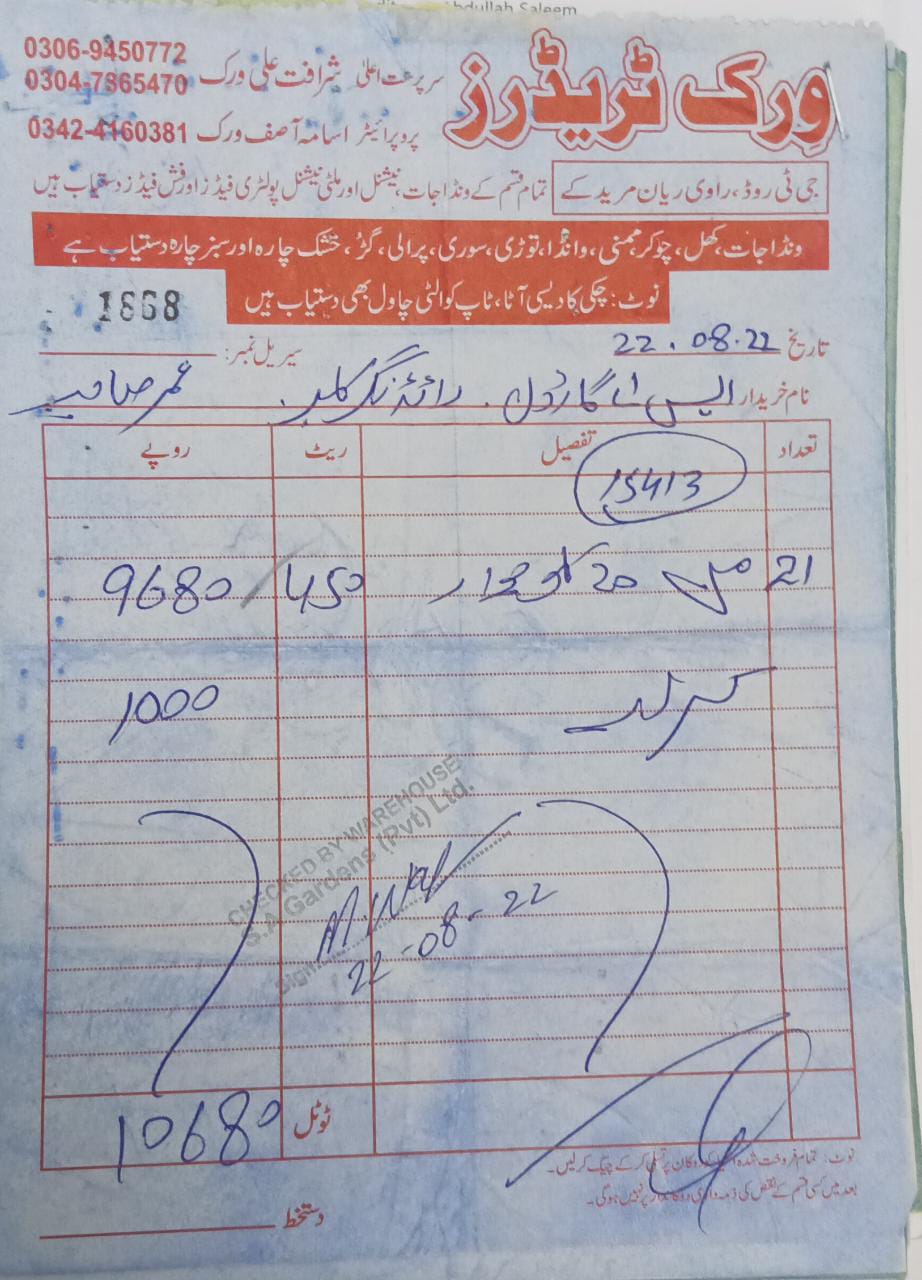 Abdullah Saleem
ورک ٹریڈرز
سرپرست اعلیٰ شرافت علی ورک 0306-9450772
0304-7865470
پروپرائیٹر اسامہ آصف ورک 0342-4160381
جی ٹی روڈ، راوی ریان مریدکے
تمام قسم کے ونڈا جات، نیشنل اور ملٹی نیشنل پولٹری فیڈز اور فش فیڈز دستیاب ہیں
ونڈا جات، کھل، چوکر، مکئی، وانڈا، توڑی، سوری، پرالی، گڑ، خشک چارہ اور سبز چارہ دستیاب ہے
نوٹ: چکی کا دیسی آٹا، ٹاپ کوالٹی چاول بھی دستیاب ہیں
1868
تاریخ 22.08.22 سیریل نمبر:
نام خریدار ایس اے گارڈن. رائڈنگ کلب. عمر صاحب
تعداد تفصیل ریٹ روپے
15413
21 من 20 کلو 450 9680
1000
CHECKED BY WAREHOUSE
S.A Gardens (Pvt) Ltd.
Sign
22-08-22
ٹوٹل 10680
نوٹ: تمام فروخت شدہ اشیاء کو دوکان پر تسلی کر کے چیک کر لیں۔
بعد میں کسی قسم کے نقص کی ذمہ داری دوکاندار پر نہیں ہوگی۔
دستخط